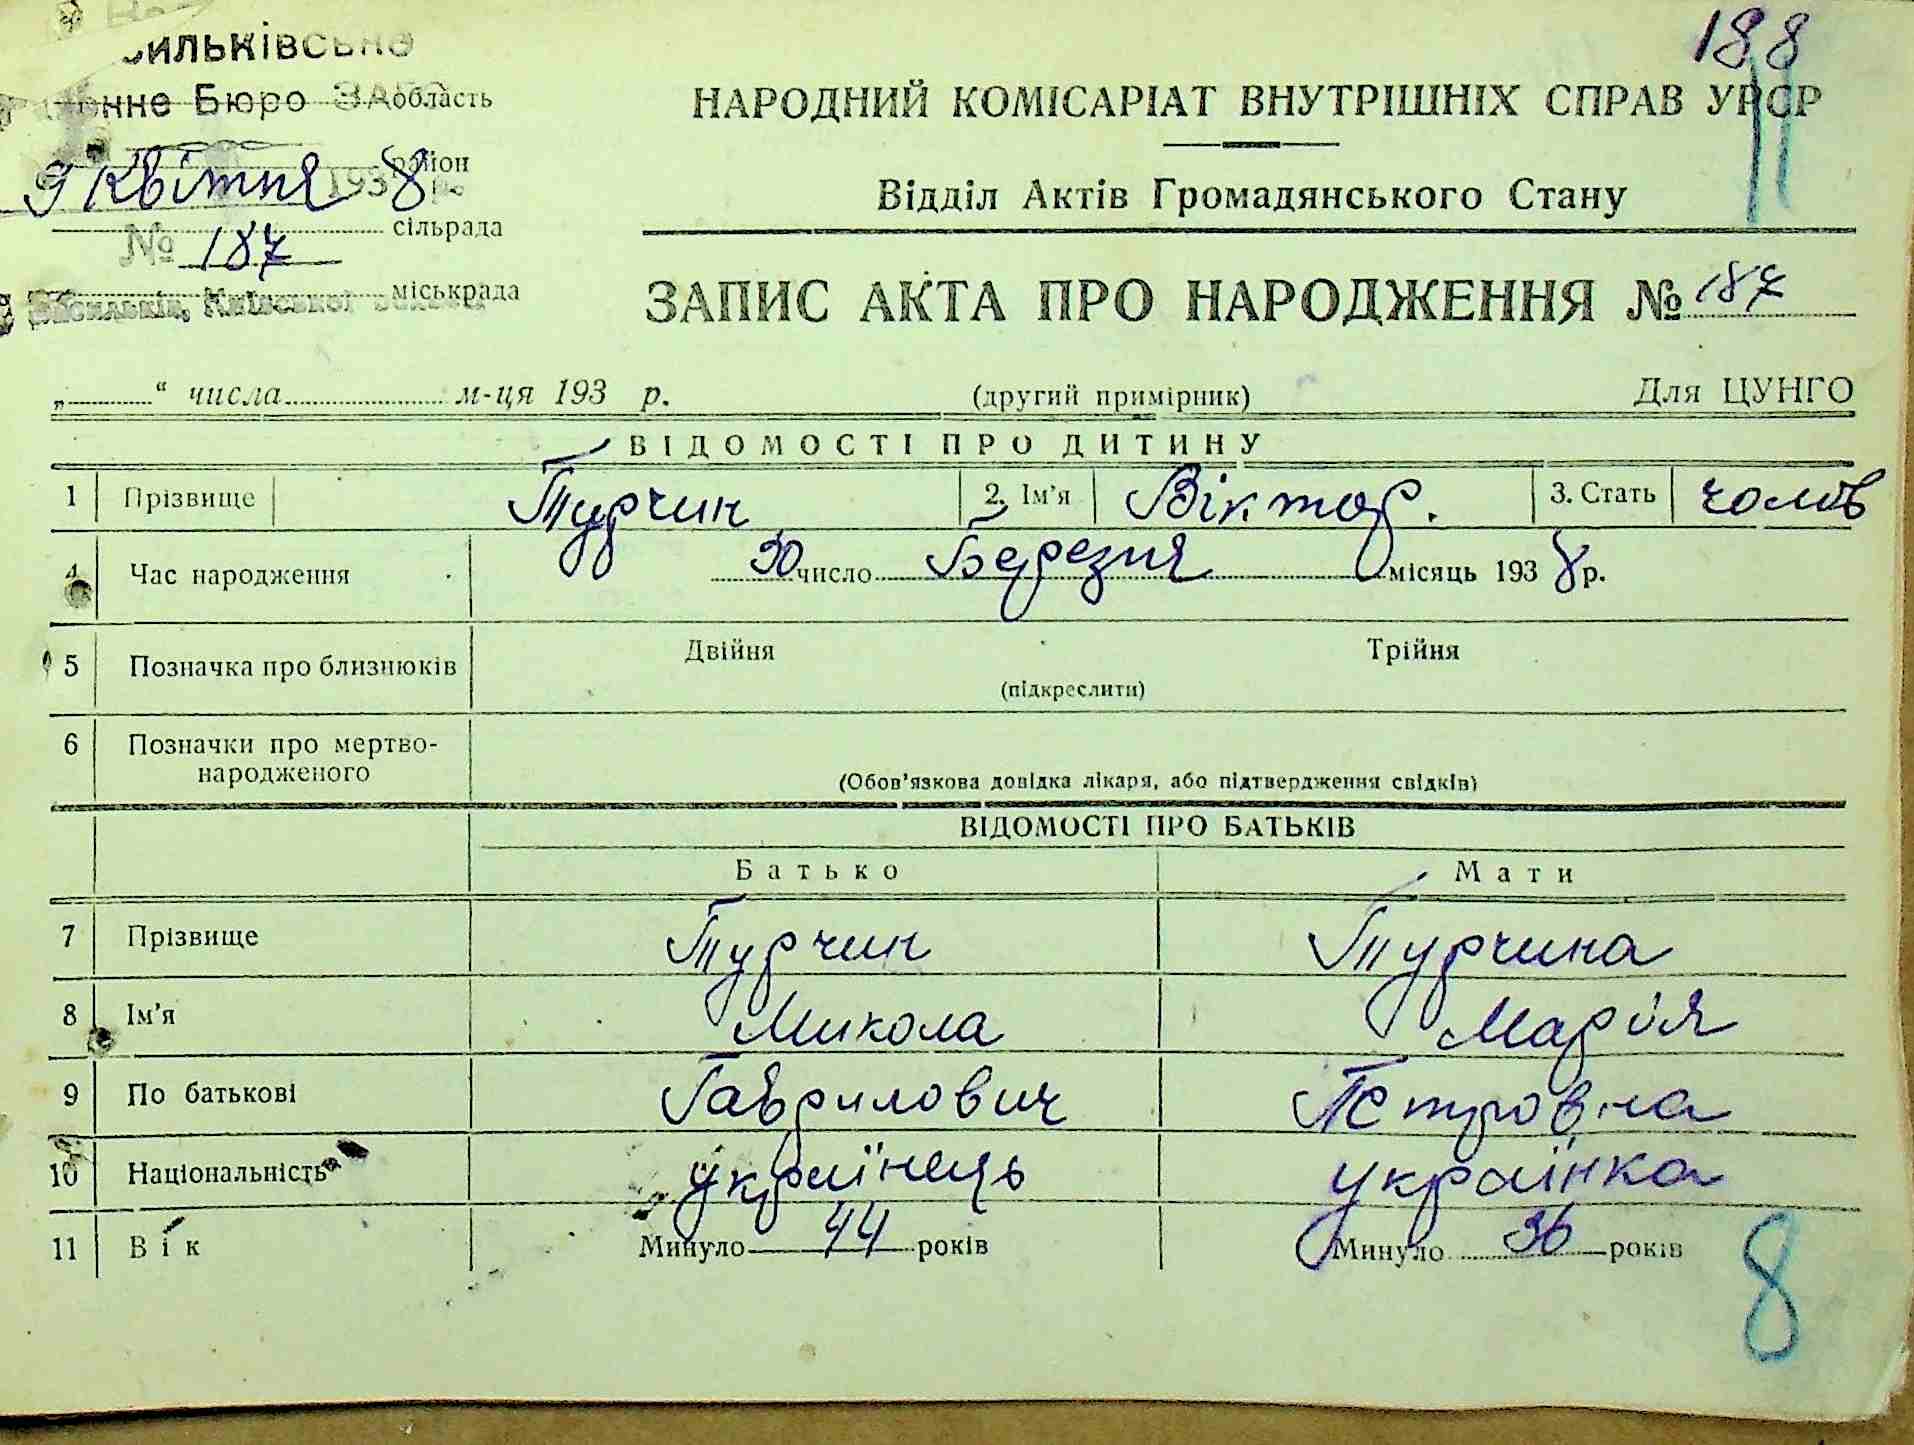 188
НАРОДНИЙ КОМІСАРІАТ ВНУТРІШНІХ СПРАВ УРСР
Бюро ЗАГС область
район
9 Квітня 1938 р
сільрада
№ 187
міськрада
Васильків, Київської
Відділ Актів Громадянського Стану
ЗАПИС АКТА ПРО НАРОДЖЕННЯ № 187
„ “ числа м-ця 193 р. (другий примірник) Для ЦУНГО
ВІДОМОСТІ ПРО ДИТИНУ
1 Прізвище Турчин 2. Ім'я Віктор. 3. Стать чолов
4 Час народження 30 число Березня місяць 1938 р.
5 Позначка про близнюків Двійня Трійня
(підкреслити)
6 Позначки про мертво-
народженого
(Обов'язкова довідка лікаря, або підтвердження свідків)
ВІДОМОСТІ ПРО БАТЬКІВ
Батько Мати
7 Прізвище Турчин Турчина
8 Ім'я Микола Марія
9 По батькові Гаврилович Петровна
10 Національність українець українка
11 Вік Минуло 44 років Минуло 36 років
8